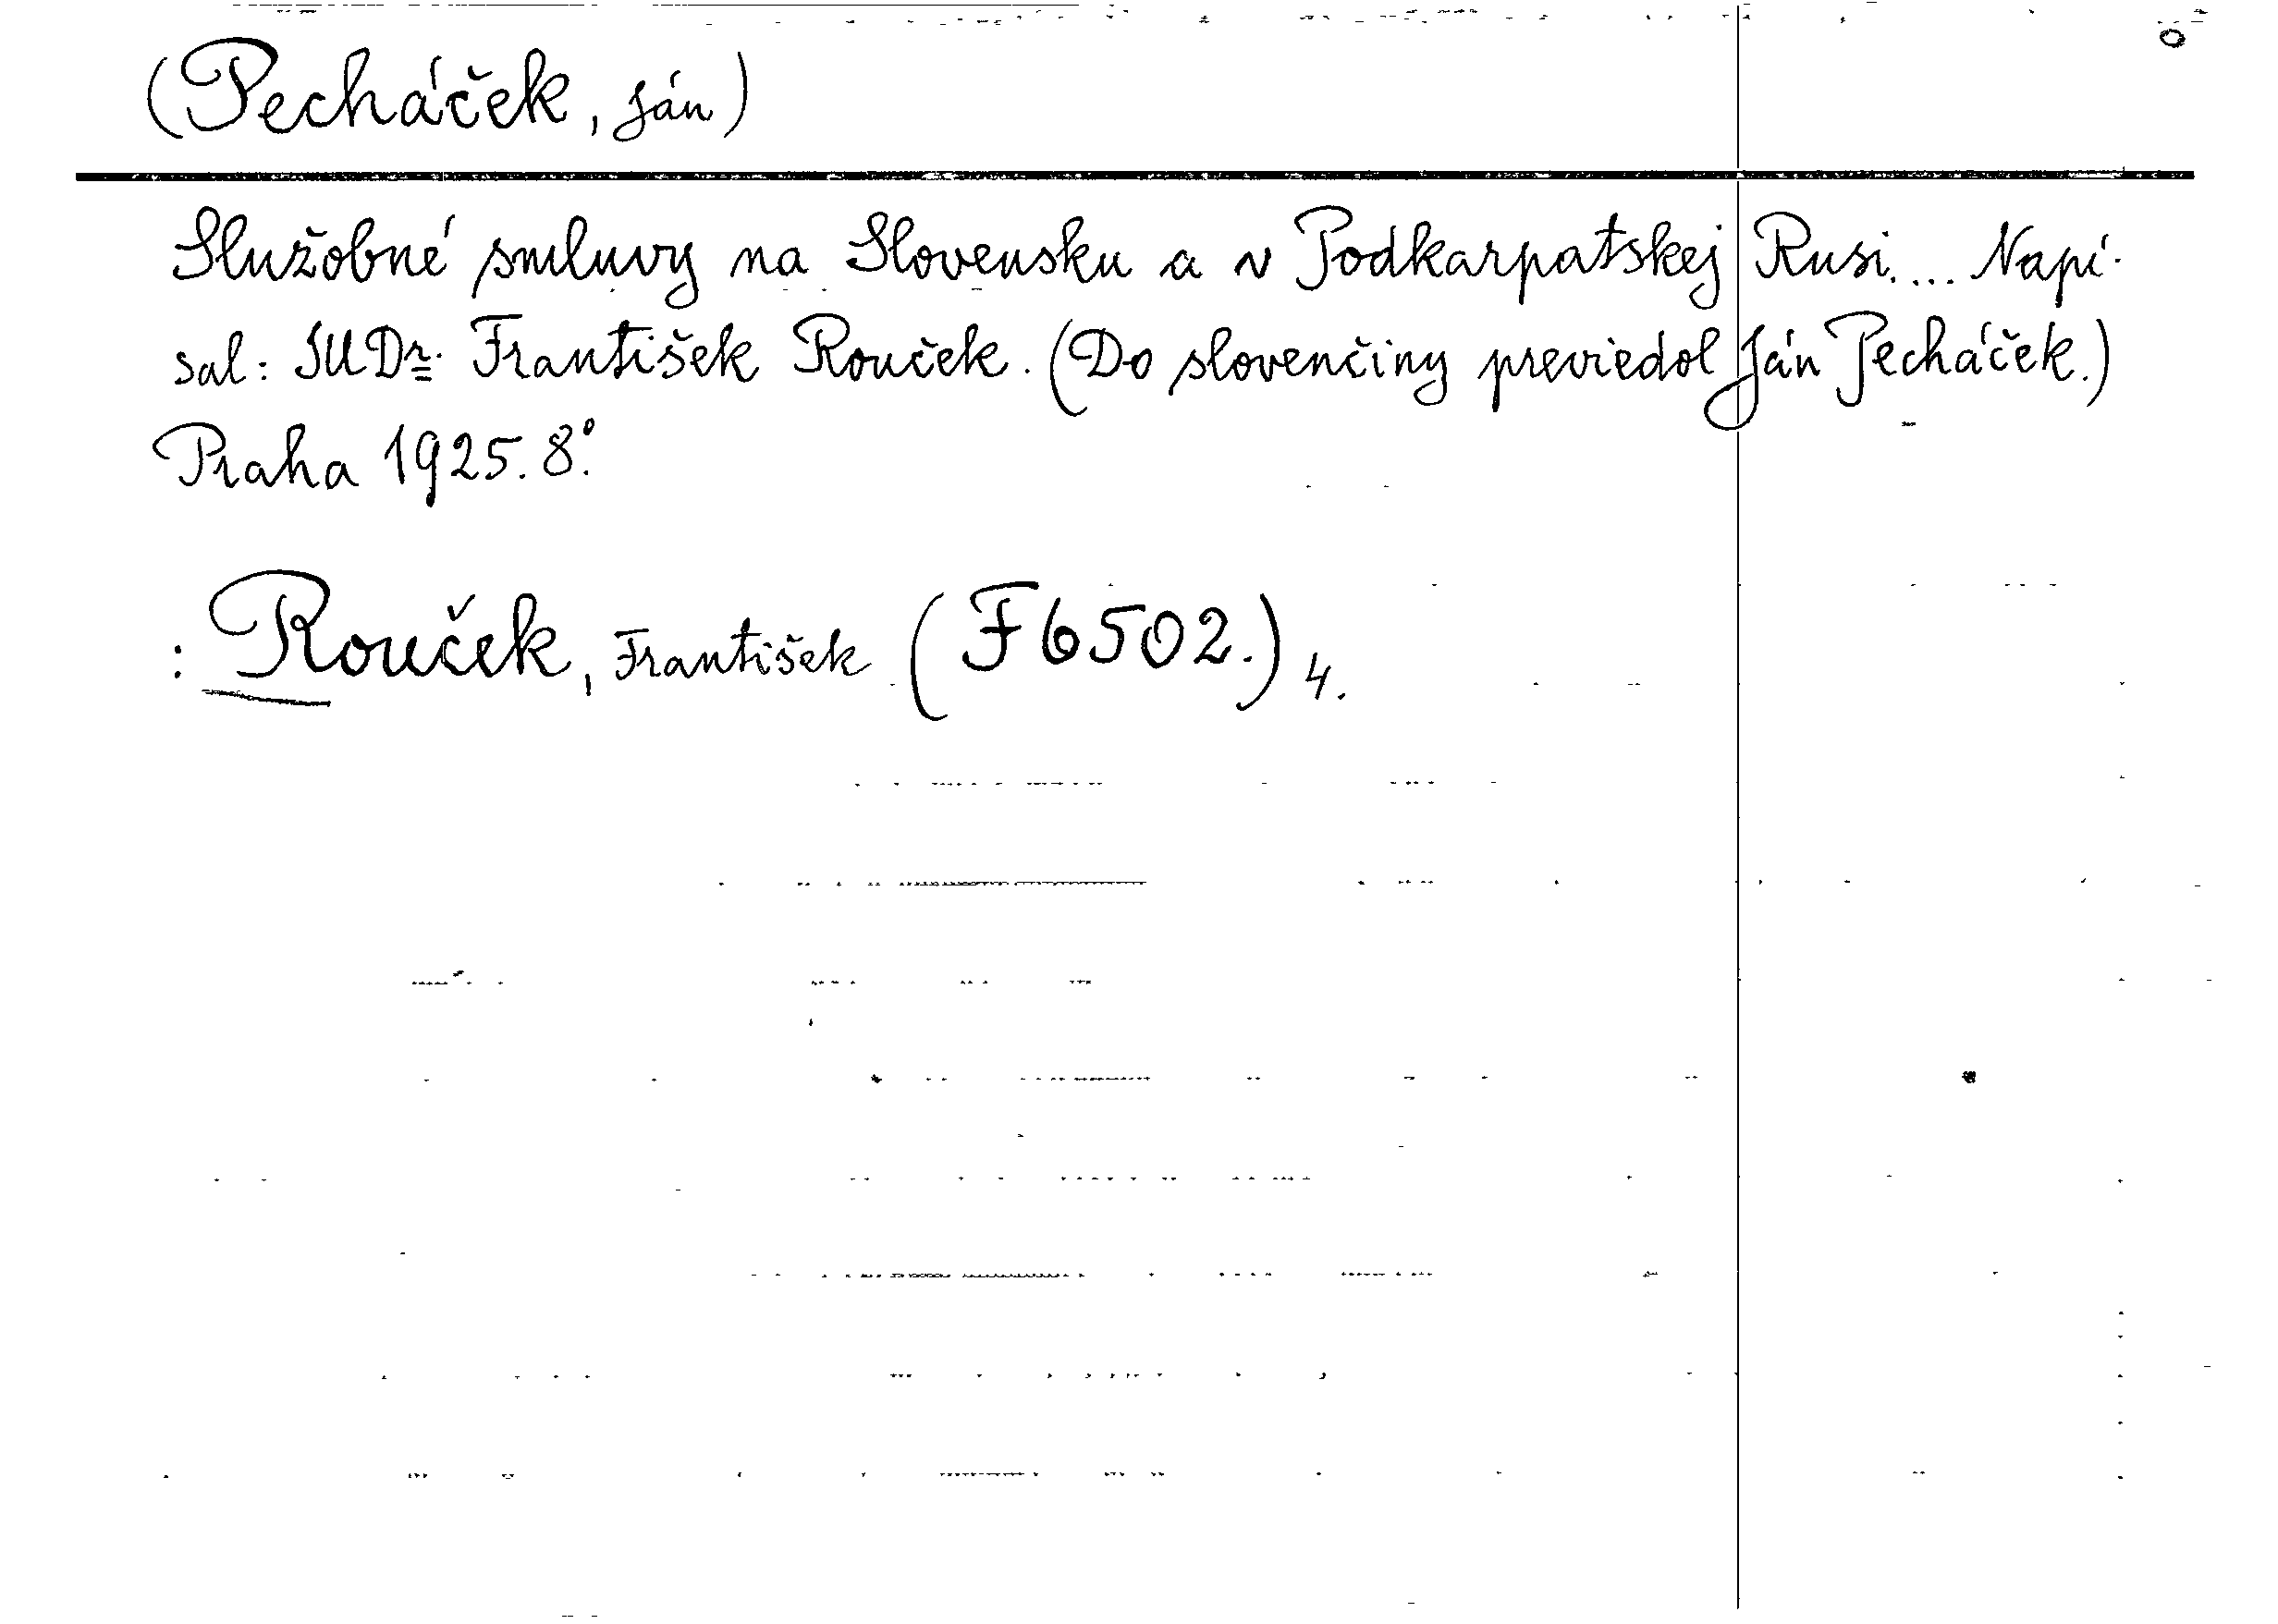 (Pecháček, Ján)
Služobné smluvy na Slovensku a v Podkarpatskej Rusi.... Napí-
sal: JUDr. František Rouček. (Do slovenčiny previedol Ján Pecháček.)
Praha 1925. 8°.
: Rouček, František (F 6502.) 4.